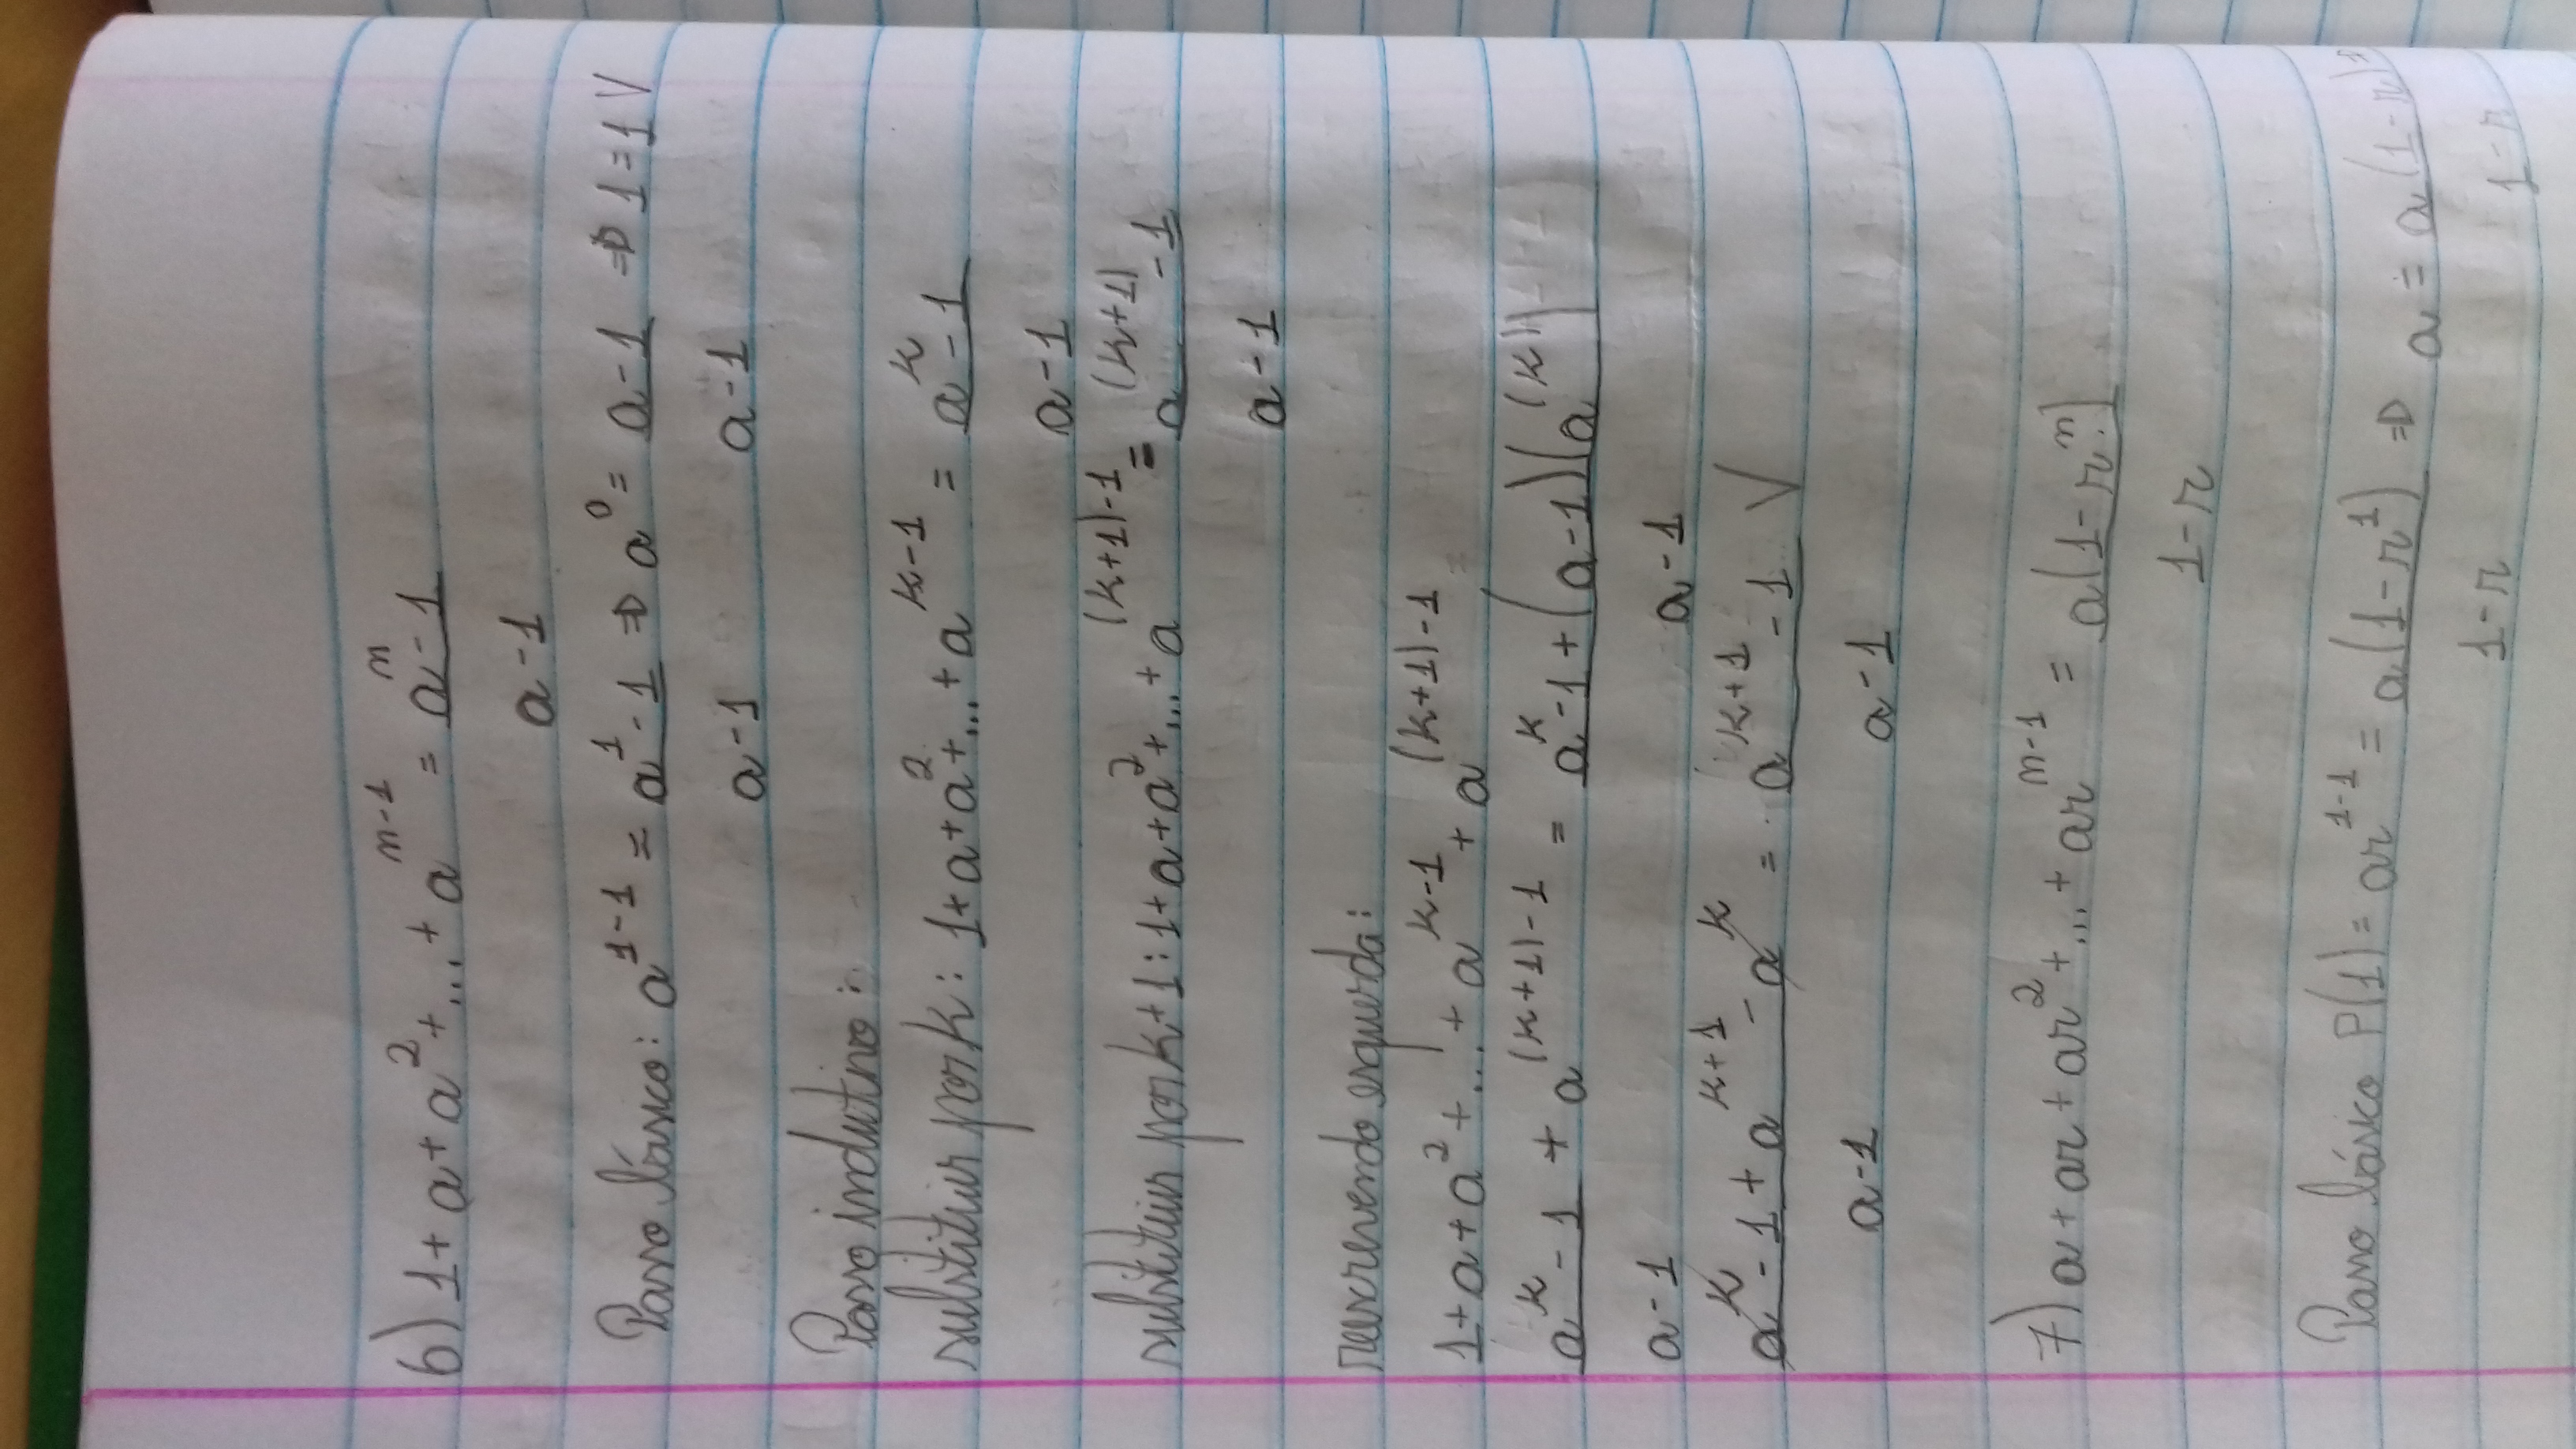 6) 1 + a + a² + ... + aⁿ⁻¹ = aⁿ - 1
a - 1
Passo básico: a¹⁻¹ = a¹ - 1 ⇒ a⁰ = a - 1 ⇒ 1 = 1 V
a - 1 a - 1
Passo indutivo:
substituir por k: 1 + a + a² + ... + aᵏ⁻¹ = aᵏ - 1
a - 1
substituir por k+1: 1 + a + a² + ... + a⁽ᵏ⁺¹⁾⁻¹ = a⁽ᵏ⁺¹⁾ - 1
a - 1
reescrevendo esquerda:
1 + a + a² + ... + aᵏ⁻¹ + a⁽ᵏ⁺¹⁾⁻¹
aᵏ - 1 + a⁽ᵏ⁺¹⁾⁻¹ = aᵏ - 1 + (a - 1)(a⁽ᵏ⁾)
a - 1 a - 1
aᵏ - 1 + aᵏ⁺¹ - aᵏ = aᵏ⁺¹ - 1 V
a - 1 a - 1
7) a + ar + ar² + ... + arⁿ⁻¹ = a(1 - rⁿ)
1 - r
Passo básico P(1) = ar¹⁻¹ = a(1 - r¹) ⇒ a = a(1 - r)
1 - r 1 - r